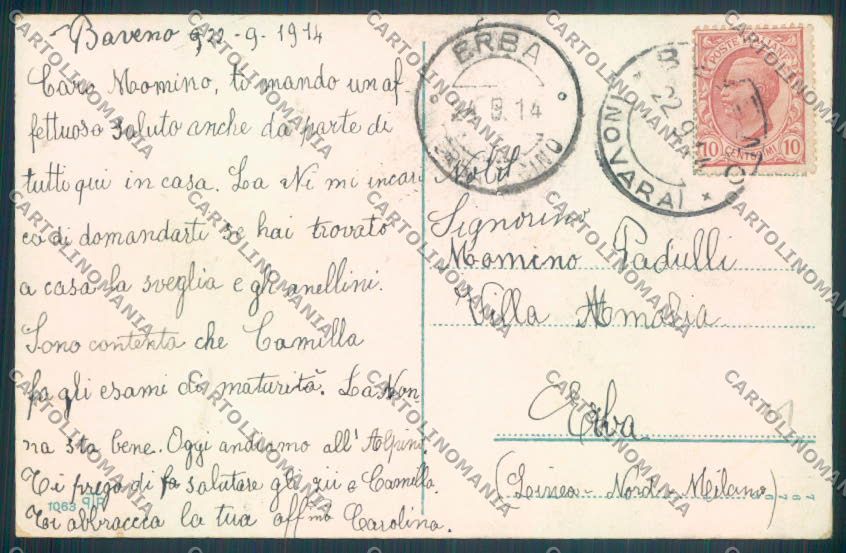 Baveno 22-9-1914
Caro Momino, ti mando un af
fettuoso saluto anche da parte di
tutti qui in casa. La Ni mi incari
ca di domandarti se hai trovato
a casa la sveglia e gli anellini.
Sono contenta che Camilla
fa gli esami di maturità. La Non-
na sta bene. Oggi andiamo all'Alpino.
Ti prego di fa salutare gli zii e Camilla.
Ti abbraccia la tua aff.ma Carolina.
1063
ERBA
9.14
22.9.14
NOVARA
POSTE ITALIANE
10 CENTESIMI 10
Nobil
Signorino
Momino Padulli
Villa Amalia
Erba
(Linea-Nord-Milano)
CARTOLINOMANIA